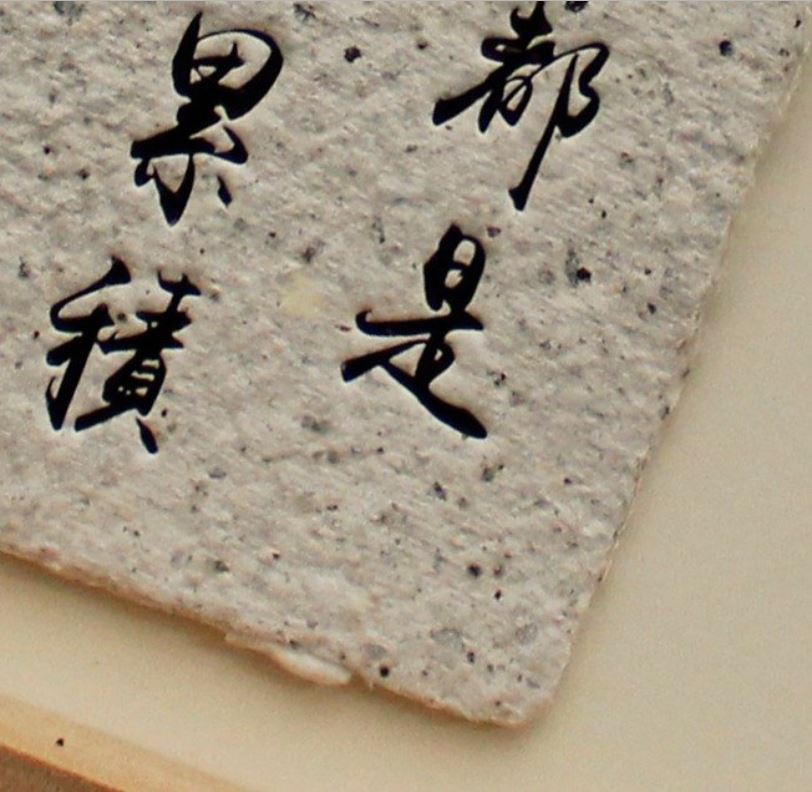 都是
累積